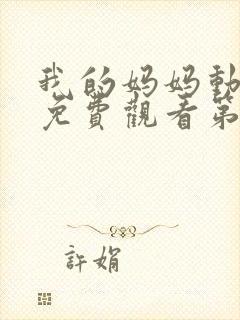 我的妈妈動
免費觀看第
許娟